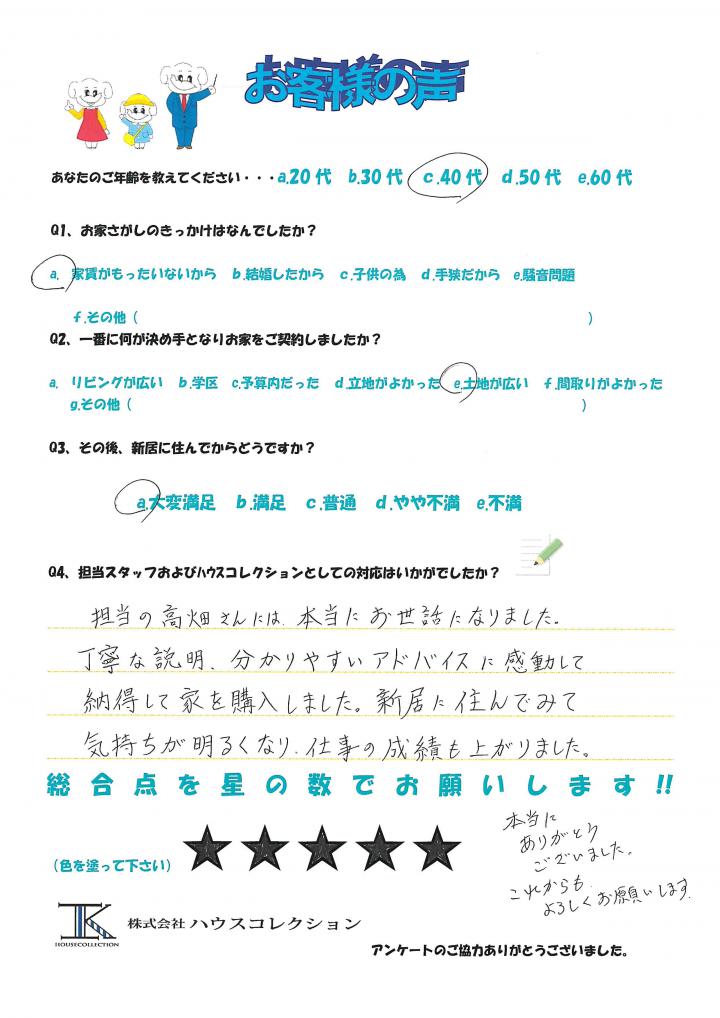 お客様の声
あなたのご年齢を教えてください・・・a.20代 b.30代 c.40代 d.50代 e.60代
Q1、お家さがしのきっかけはなんでしたか？
a. 家賃がもったいないから b.結婚したから c.子供の為 d.手狭だから e.騒音問題
f.その他（ ）
Q2、一番に何が決め手となりお家をご契約しましたか？
a. リビングが広い b.学区 c.予算内だった d.立地がよかった e.土地が広い f.間取りがよかった
g.その他（ ）
Q3、その後、新居に住んでからどうですか？
a.大変満足 b.満足 c.普通 d.やや不満 e.不満
Q4、担当スタッフおよびﾊｳｽコレクションとしての対応はいかがでしたか？
担当の高畑さんには、本当にお世話になりました。
丁寧な説明、分かりやすいアドバイスに感動して
納得して家を購入しました。新居に住んでみて
気持ちが明るくなり、仕事の成績も上がりました。
総合点を星の数でお願いします!!
（色を塗って下さい）
本当に
ありがとう
ございました。
これからも
よろしくお願いします
HOUSECOLLECTION
株式会社 ハウスコレクション
アンケートのご協力ありがとうございました。